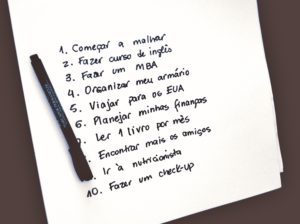 1. Começar a malhar
2. Fazer curso de inglês
3. Fazer um MBA
4. Organizar meu armário
5. Viajar para os EUA
6. Planejar minhas finanças
Ler 1 livro por mês
Encontrar mais os amigos
Ir à nutricionista
10. Fazer um check-up